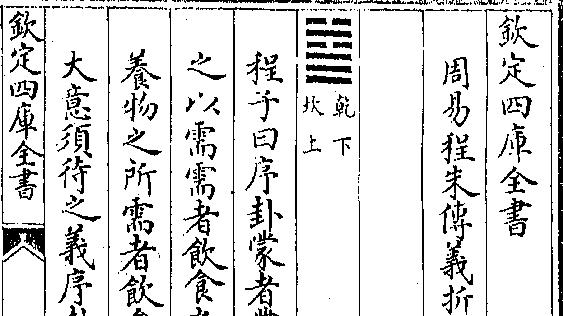 欽定四庫全書
周易程朱傳義折
乾下
坎上
程子曰序卦蒙者
之以需需者飲食
養物之所需者飲
大意須待之義序
欽定四庫全書